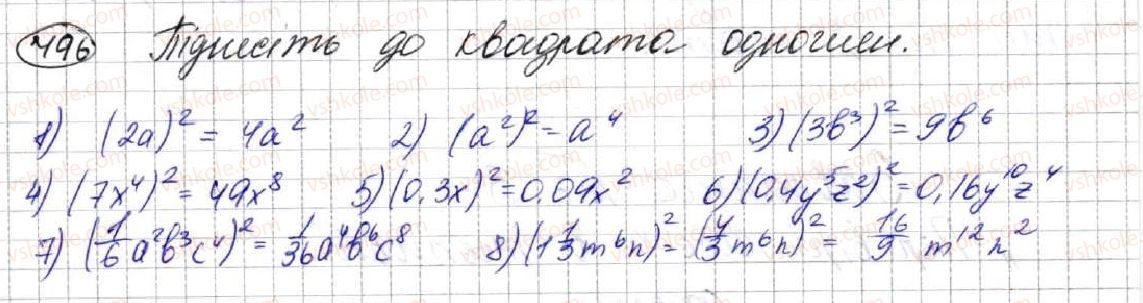 496 Піднесіть до квадрата одночлен.
1) (2a)² = 4a² 2) (a²)² = a⁴ 3) (3b³)² = 9b⁶
4) (7x⁴)² = 49x⁸ 5) (0,3x)² = 0,09x² 6) (0,4y⁵z²)² = 0,16y¹⁰z⁴
7) (1/6 a²b³c⁴)² = 1/36 a⁴b⁶c⁸ 8) (1 1/3 m⁶n)² = (4/3 m⁶n)² = 16/9 m¹²n²